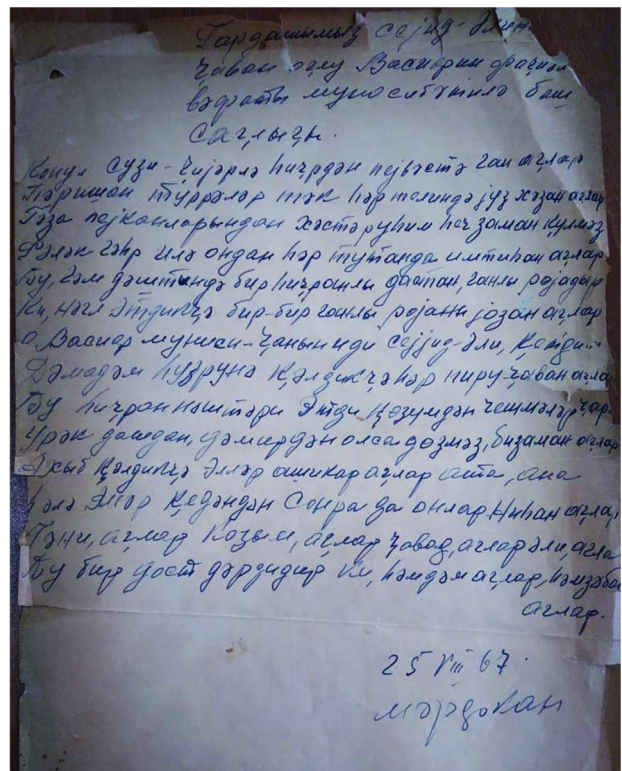 Гардашымыз Сејид-Әлин
Ҹаван оғлу Васифин фәҹиәл
вәфаты мүнасибәтилә баш
сағлығы.
Көнүл сузи-ҹијәрлә һиҹрдән пејвәстә ган ағлар
Пәришан түррәләр тәк һәр телиндә јүз хәзан ағлар
Гәза пејканларындан хәстә руһим һеч заман күлмәз
Фәләк гәһр илә ондан һәр тутанда имтиһан ағлар
Бу, гәм дәштиндә бир һиҹранлы дастан, ганлы рөјадыр
Ки, нәгл Этдикҹә бир-бир ганлы рөјаны јазан ағлар
о, Васиф мүниси-ҹаным иди Сејид-Әли, Кетди..
Дәмадәм һүзрүнә Кәлдикҹә һәр пирү ҹаван ағла
Бу һиҹран нештәри Этди Көзүмдән чешмәләр ҹари
Үрәк дашдан, дәмирдән олса дөзмәз, биз аман ағлар
Ахыб Кәлдикҹә Әлләр ашикар ағлар ата, ана
һәлә Элләр Кедәндән Сонра да онлар Ниһан ағлар
Гәни, ағлар Козым, ағлар Ҹавад, ағлар әли, ағла
Бу бир дост дәрдидир Ки, һәмдәм ағлар, һәмзәба
ағлар.
25 VIII 67.
Мәрдәкан